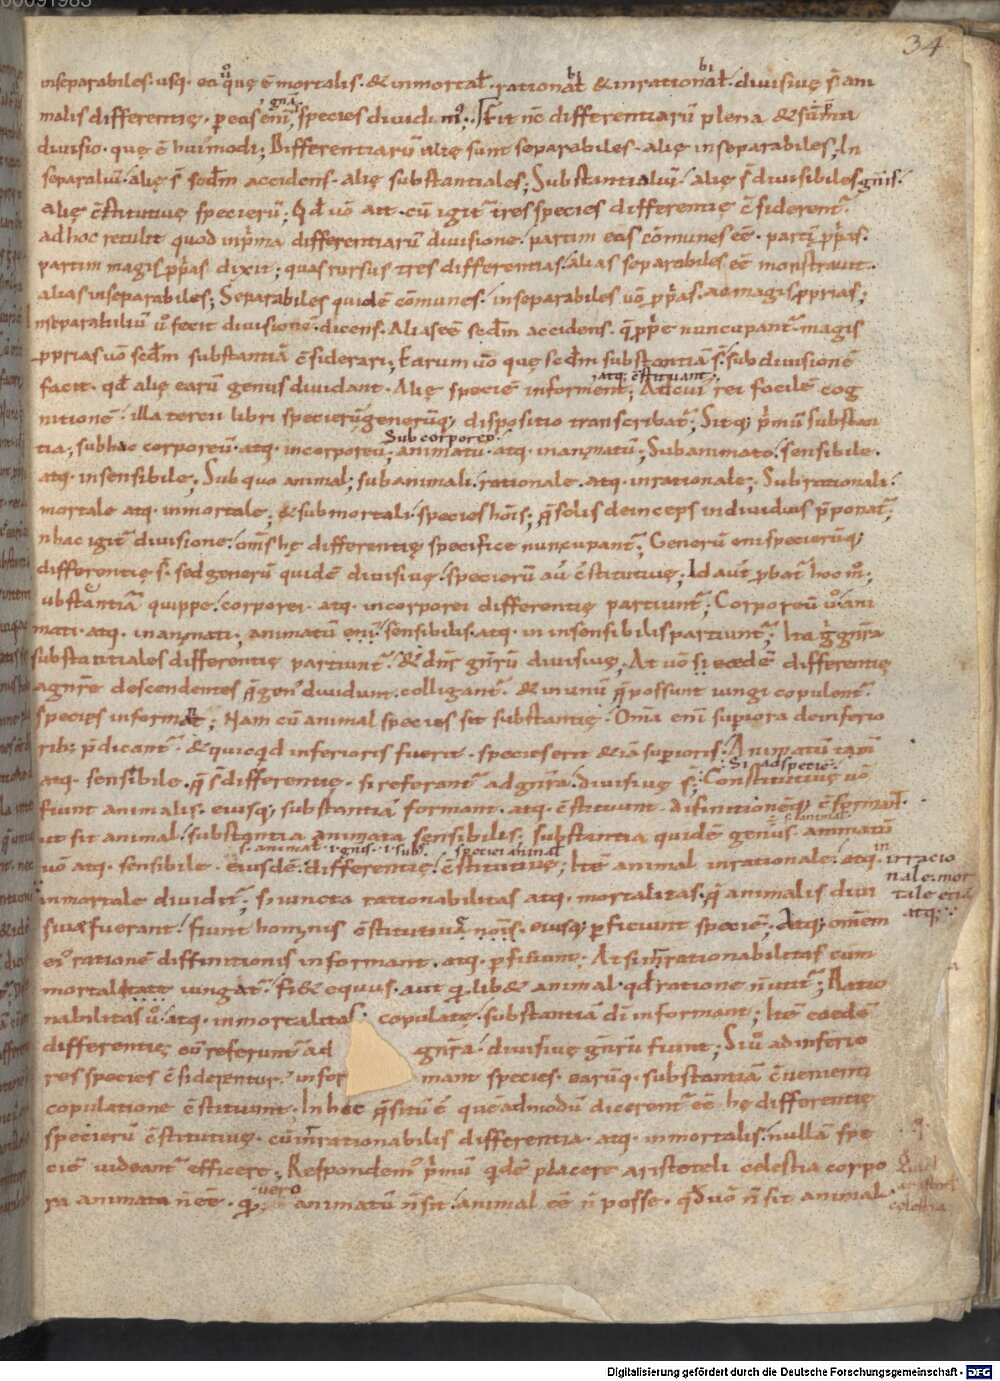 34
inseparabiles · usq · ea quę ē mortalis · & inmortał · rationał & inrationał · divisivę s̄ ani
malis differentię · p eas enī, species dividim⁹ · Fit nc̄ differentiarū plena & sūma
divisio · quę ē hui᾽modi; Differentiarū alię sunt separabiles · alię inseparabiles; In
separaliū · alię s̄ scd̄m accidens · alię substantiales; Substantialiū · alię s̄ divisibiles gn̄is ·
alię c̄stitutivę specierū; Qd̄ uō ait · cū igit̄ tres species differentię c̄siderent̄
ad hoc retulit quod inp̄ma differentiarū divisione · partim eas cōmunes eē · partī p̄p̄as ·
partim magis p̄p̄as dixit; quas rursus tres differentias · alias separabiles eē monstravit ·
alias inseparabiles; Separabiles quidē cōmunes · inseparabiles uō p̄p̄as · ac magis p̄prias;
nseparabiliū uo fecit divisionē · dicens · Alias eē scd̄m accidens · q̄ p̄p̄e nuncupant̄ · magis
pprias uō scd̄m substantiā c̄siderari; Earum uō quę scd̄m substantiā s̄ · subdivisionē
atq c̄stituant ·
facit · qd̄ alię earū genus dividant · Alię speciē informent; Ad cui᾽ rei facilē cog
nitionē · illa terii libri specierū generūq; dispositio transcribat̄; Sitq; p̄mū substan
Sub corporeo ·
tia; sub hac corporeū · atq · incorporeū; animatū · atq · inanimatū; Sub animato · sensibile ·
atq · insensibile; Sub quo animal; sub animali · rationale · atq · inrationale; Sub rationali ·
mortale atq · inmortale; & sub mortali · species hōis; q̄ solis deinceps individuis p̄ponat̄;
n hac igit̄ divisione · om̄s hę differentię specificę nuncupant̄; Generū eni specierūq;
differentię s̄ · sed generū quidē divisivę · specierū aū c̄stitutivę; Id aut̄ p̄bat̄ hoc mo;
ubstantiā quippe · corporei · atq · incorporei differentię partiunt̄; Corporeū uo · ani
mati · atq · inanimati; animatū enī · sensibilis · atq · in insensibilis partiunt̄; Ita g gn̄ra
substantiales differentię partiunt̄ · & dn̄r gn̄rū divisivę; At uō si eędē differentię
a gn̄re descendentes q̄ gen᾽ dividunt · colligant̄ · & in unū q̄ possunt iungi copulent̄ ·
species informat̄; Nam cū animal species sit substantię · Om̄a enī superiora de inferio
rib; p̄dicant̄ · & quicqd̄ inferioris fuerit · species erit & iā superioris · Animatū tam̄
Si ad specię ·
atq · sensibile · q̄ s̄ differentię · si referant̄ ad gn̄ra · divisivę s̄; Constitutivę uō
fiunt animalis · eiusq; substantiā formant · atq · c̄stituunt · difinitionēq; c̄formant ·
ut sit animal · substantia animata sensibilis; substantia quidē genus · animatū
uō atq · sensibile · eiusdē · differentię · c̄stitutivę; Itē animal inrationale · atq ·
irracio
nale · mor
tale etiā
atq;
inmortale dividit̄; si iuncta rationabilitas atq · mortalitas · q̄ animalis divi
sivę fuerant · fiunt hominis c̄stitutivę · eiusq; p ficiunt speciē · Atq; omnem
ei᾽ rationē diffinitionis informant · atq · p ficiunt; At si inrationabilitas cum
mortalitate iungat̄ · fi& equus · aut qlib& animal · qd̄ ratione n̄ utit̄; Ratio
nabilitas uo · atq · inmortalitas copulatę · substantiā dī informant; Itē eaedē
differentię cū referunt̄ ad gn̄ra · divisivę gn̄rū fiunt; Si uo ad inferio
res species c̄siderentur · infor mant species · earūq · substantiā c̄venienti
copulatione c̄stituunt · In hac q̄sitū ē quēadmodū dicerent̄ eē hę differentię
specierū c̄stitutivę · cū inrationabilis differentia · atq · inmortalis · nullā spe
ciē videant̄ efficere; Respondem᾽ p̄mū qdē placere aristoteli cęlestia corpo
ra animata n̄ eē · q vero animatū n̄ sit · animal eē n̄ posse · qd̄ uō n̄ sit animal
Digitalisierung gefördert durch die Deutsche Forschungsgemeinschaft - DFG